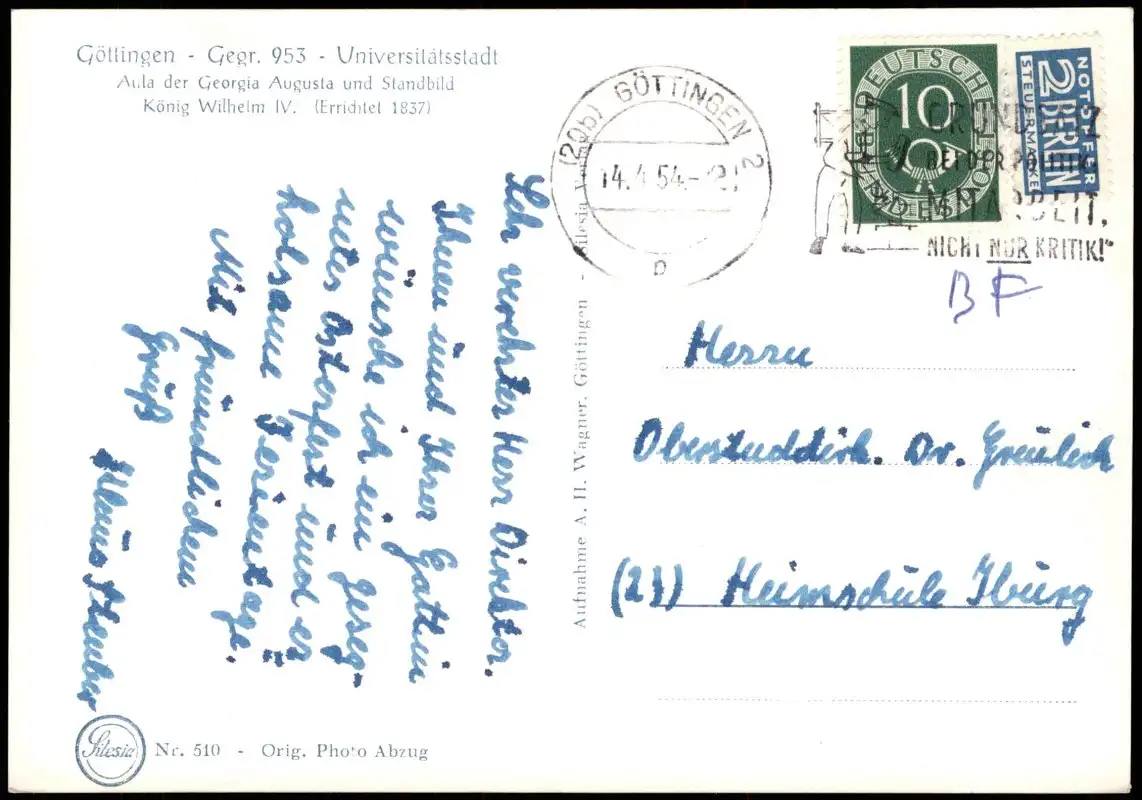 Göttingen - Gegr. 953 - Universitätsstadt
Aula der Georgia Augusta und Standbild
König Wilhelm IV. (Errichtet 1837)
(20b) GÖTTINGEN 2
14.4.54
p
DEUTSCHE BUNDESPOST
10
NOTOPFER
2 BERLIN
STEUERMARKE
GRUNDSATZ
BEI DER POLITIK:
MITARBEIT,
NICHT NUR KRITIK!"
BF
Sehr verehrter Herr Direktor.
Ihnen und Ihrer Gattin
wünsche ich ein geseg-
netes Osterfest und er
holsame Ferientage.
Mit freundlichem
Gruß
Klaus
Aufnahme A. H. Wagner, Göttingen - Silesia Verlag
Herrn
Oberstuddirk. Dr. Greulich
(23) Heimschule Iburg
Silesia
Nr. 510 - Orig. Photo Abzug